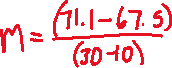 m = (71.1-67.5) / (30-10)